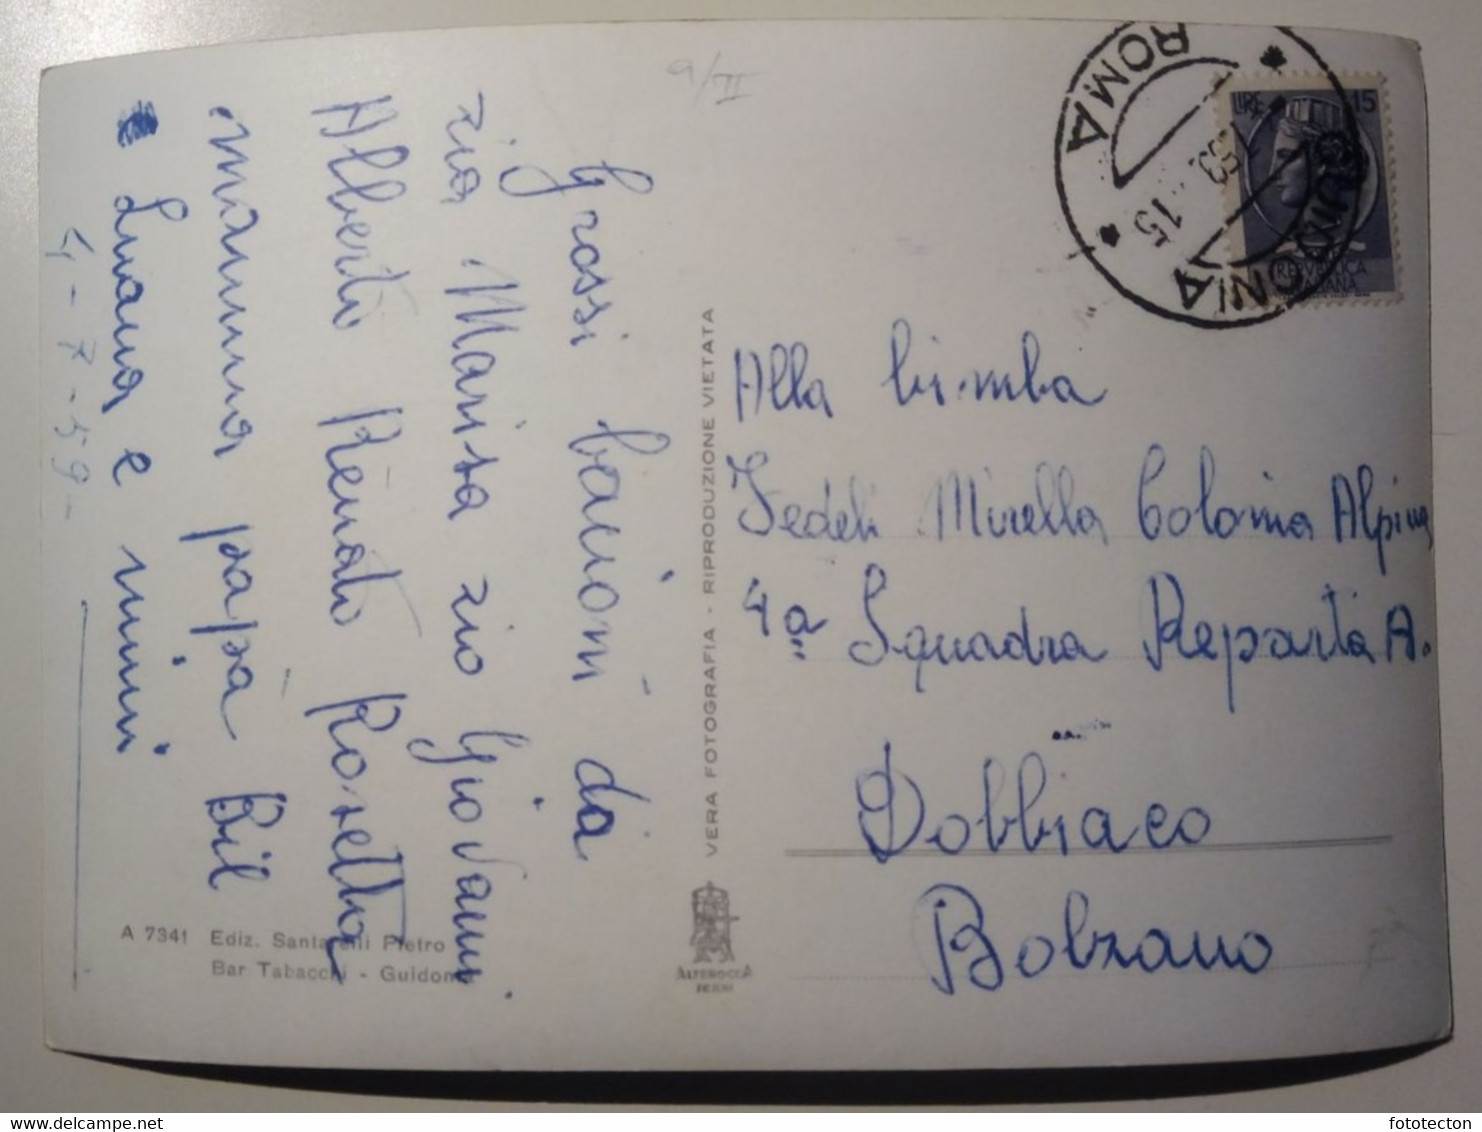 9/VII
Grossi bacioni da
zia Marisa zio Giovanni
Alberto Renato Rosetta
mamma papà Bil
Luana e mimì
4-7-59-
A 7341 Ediz. Santarelli Pietro
Bar Tabacchi - Guidonia
VERA FOTOGRAFIA - RIPRODUZIONE VIETATA
ALTEROCCA
TERNI
ROMA
GUIDONIA
15
LIRE 15
REPVBBLICA
ITALIANA
Alla bimba
Fedeli Mirella Colonia Alpina
4a Squadra Reparto A.
Dobbiaco
Bolzano
fototecton